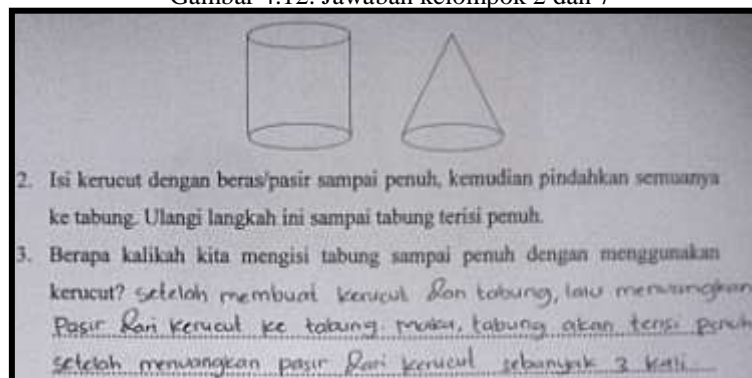 Gambar 4.12. Jawaban kelompok 2 dan 7
2. Isi kerucut dengan beras/pasir sampai penuh, kemudian pindahkan semuanya
ke tabung. Ulangi langkah ini sampai tabung terisi penuh.
3. Berapa kalikah kita mengisi tabung sampai penuh dengan menggunakan
kerucut? setelah membuat kerucut dan tabung, lalu menuangkan
Pasir dari kerucut ke tabung. maka, tabung akan terisi penuh
setelah menuangkan pasir dari kerucut sebanyak 3 kali